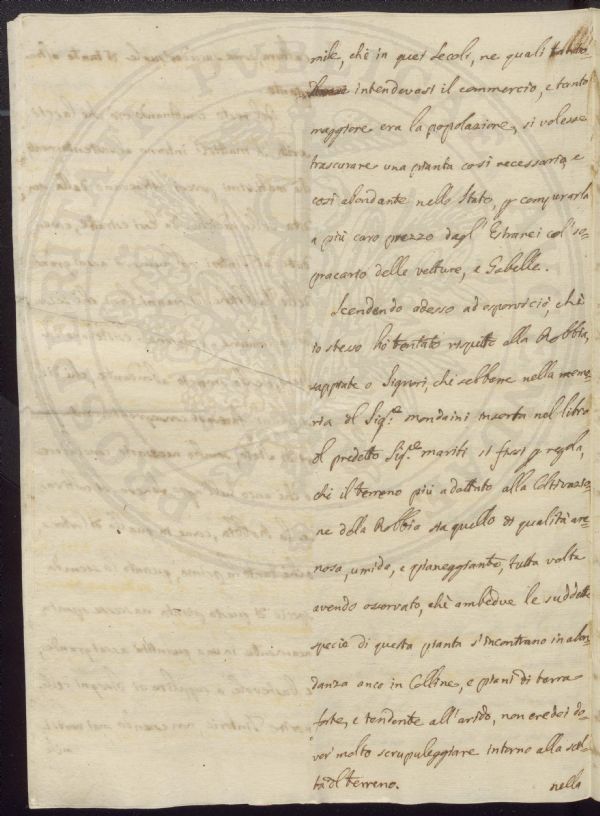 mile, chè in quei secoli, ne quali
intendevasi il commercio, e tanto
maggiore era la popolazione, si volesse
trascurare una pianta così necessaria, e
così abondante nello Stato, p comprarla
a più caro prezzo dagl' Estranei col' so-
pracarto delle vetture, e Gabelle.
Scendendo adesso ad esporvi ciò, chè
io stesso hò tentato rispetto alla Robbia,
sappiate o Signori, chè sebbene nella memo-
ria del Sig.re Mondaini inserta nel libro
del predetto Sig.re Mariti si fissi p regola,
chè il terreno più adattato alla Coltivazio-
ne della Robbia sia quello di qualità are-
nosa, umida, e pianeggiante, tutta volta
avendo osservato, chè ambedue le suddette
specie di questa pianta s'incontrano in abon-
danza anco in Colline, e piani di terra
forte, e tendente all'arido, non credei do-
ver molto scrupuleggiare intorno alla scel-
ta del terreno.
nella